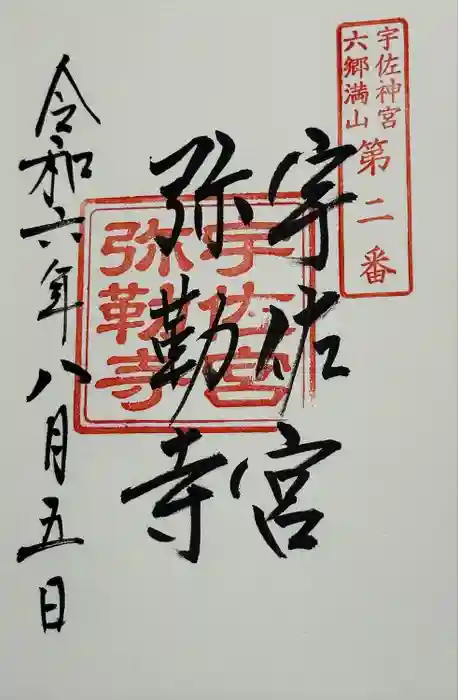 宇佐神宮
六郷満山
第二番
宇佐宮
弥勒寺
宇佐宮
弥勒寺
令和六年八月五日